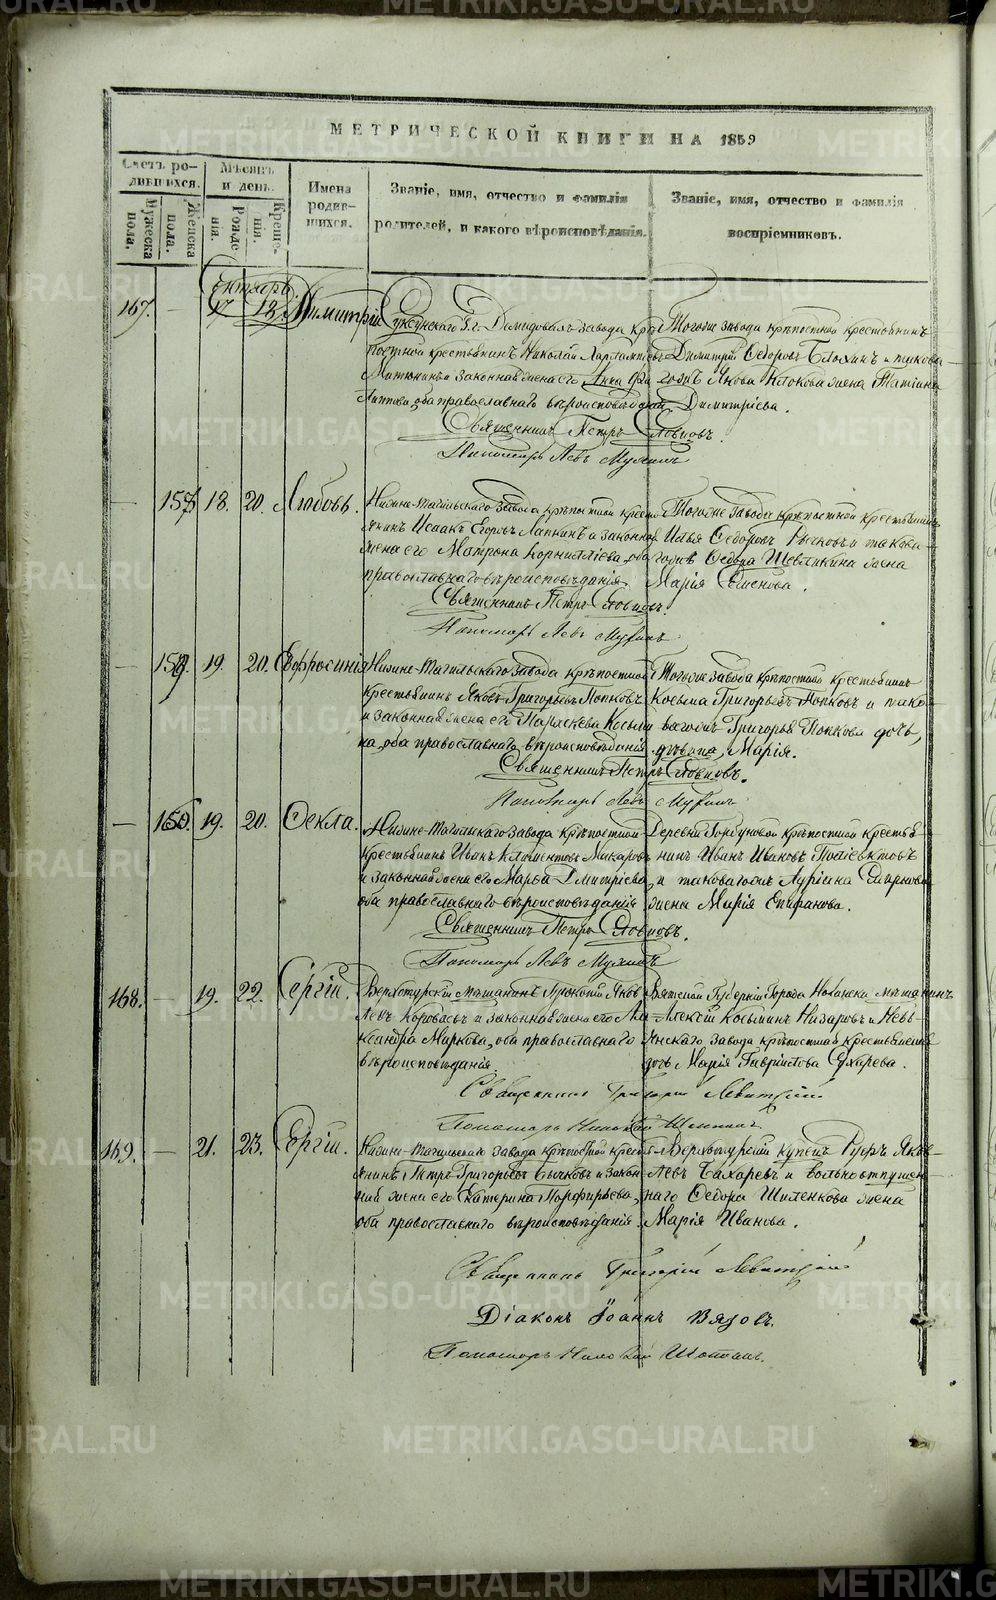 МЕТРИЧЕСКОЙ КНИГИ НА 1859
Счетъ родившихся.
Мужеска пола.
Женска пола.
Мѣсяцъ и день.
Рожденія.
Крещенія.
Имена родившихся.
Званіе, имя, отчество и фамилія родителей, и какого вѣроисповѣданія.
Званіе, имя, отчество и фамилія воспріемниковъ.
Сентябрь
167. — 17 18. Димитрій
Суксунскаго Г.г. Демидовыхъ завода крѣ
постной крестьянинъ Николай Харлампіевъ
Митюнинъ и законная жена его Анна
оба православнаго вѣроисповѣданія
Тогоже завода крѣпостной крестьянинъ
Димитрій Ѳедоровъ Блохинъ и таково
годъ Якова Клокова жена Татіана
Димитріева.
Священникъ Петръ Словцовъ.
Пономарь Левъ Мухинъ
— 157 18. 20. Любовь.
Нижне-Тагильскаго завода крѣпостной кресть
янинъ Исаакъ Егоровъ Лапкинъ и законная
жена его Матрона Корниліева, оба
православнаго вѣроисповѣданія
Тогоже завода крѣпостной крестьянинъ
Илья Ѳедоровъ Рычковъ и такова
годъ Ѳедора Шевлякина жена
Марія Семенова.
Священникъ Петръ Словцовъ.
Пономарь Левъ Мухинъ
— 158. 19. 20. Евфросинія
Нижне-Тагильскаго завода крѣпостной
крестьянинъ Яковъ Григорьевъ Попковъ
и законная жена его Параскева Космы
на, оба православнаго вѣроисповѣданія
Тогоже завода крѣпостной крестьянинъ
Косьма Григорьевъ Попковъ и тако
вагожъ Григорья Попкова дочь,
дѣвица, Марія.
Священникъ Петръ Словцовъ.
Пономарь Левъ Мухинъ
— 159. 19. 20. Ѳекла.
Нижне-Тагильскаго завода крѣпостной
крестьянинъ Иванъ Климентовъ Макаровъ
и законная жена его Марѳа Димитріева,
оба православнаго вѣроисповѣданія
Деревни Горбуновой крѣпостной крестья
нинъ Иванъ Ивановъ Поліевктовъ
и таковагожъ Смирнова
жена Марія Епифанова.
Священникъ Петръ Словцовъ.
Пономарь Левъ Мухинъ
168. — 19. 22. Сергій.
Верхотурскій мѣщанинъ Прокопій Яков
левъ Коровасъ и законная жена его Але
ксандра Маркова, оба православнаго
вѣроисповѣданія.
Вятской Губерніи Города Нолинска мѣщанинъ
Алексій Косьминъ Назаровъ и Невь
янскаго завода крѣпостнаго крестьянина
дочь Марія Гавріилова Сухарева.
Священникъ Григорій Левитскій
Пономарь Николай
169. — 21. 23. Сергій.
Нижне-Тагильскаго завода крѣпостной кресть
янинъ Петръ Григорьевъ Бычковъ и закон
ная жена его Екатерина Порфирьева,
оба православнаго вѣроисповѣданія.
Верхотурскій купецъ Руфъ Яков
левъ Бахаревъ и вольноотпущен
наго Ѳедора Шиленкова жена
Марія Иванова.
Священникъ Григорій Левитскій
Діаконъ Іоаннъ Вязовъ.
Пономарь Николай
METRIKI.GASO-URAL.RU